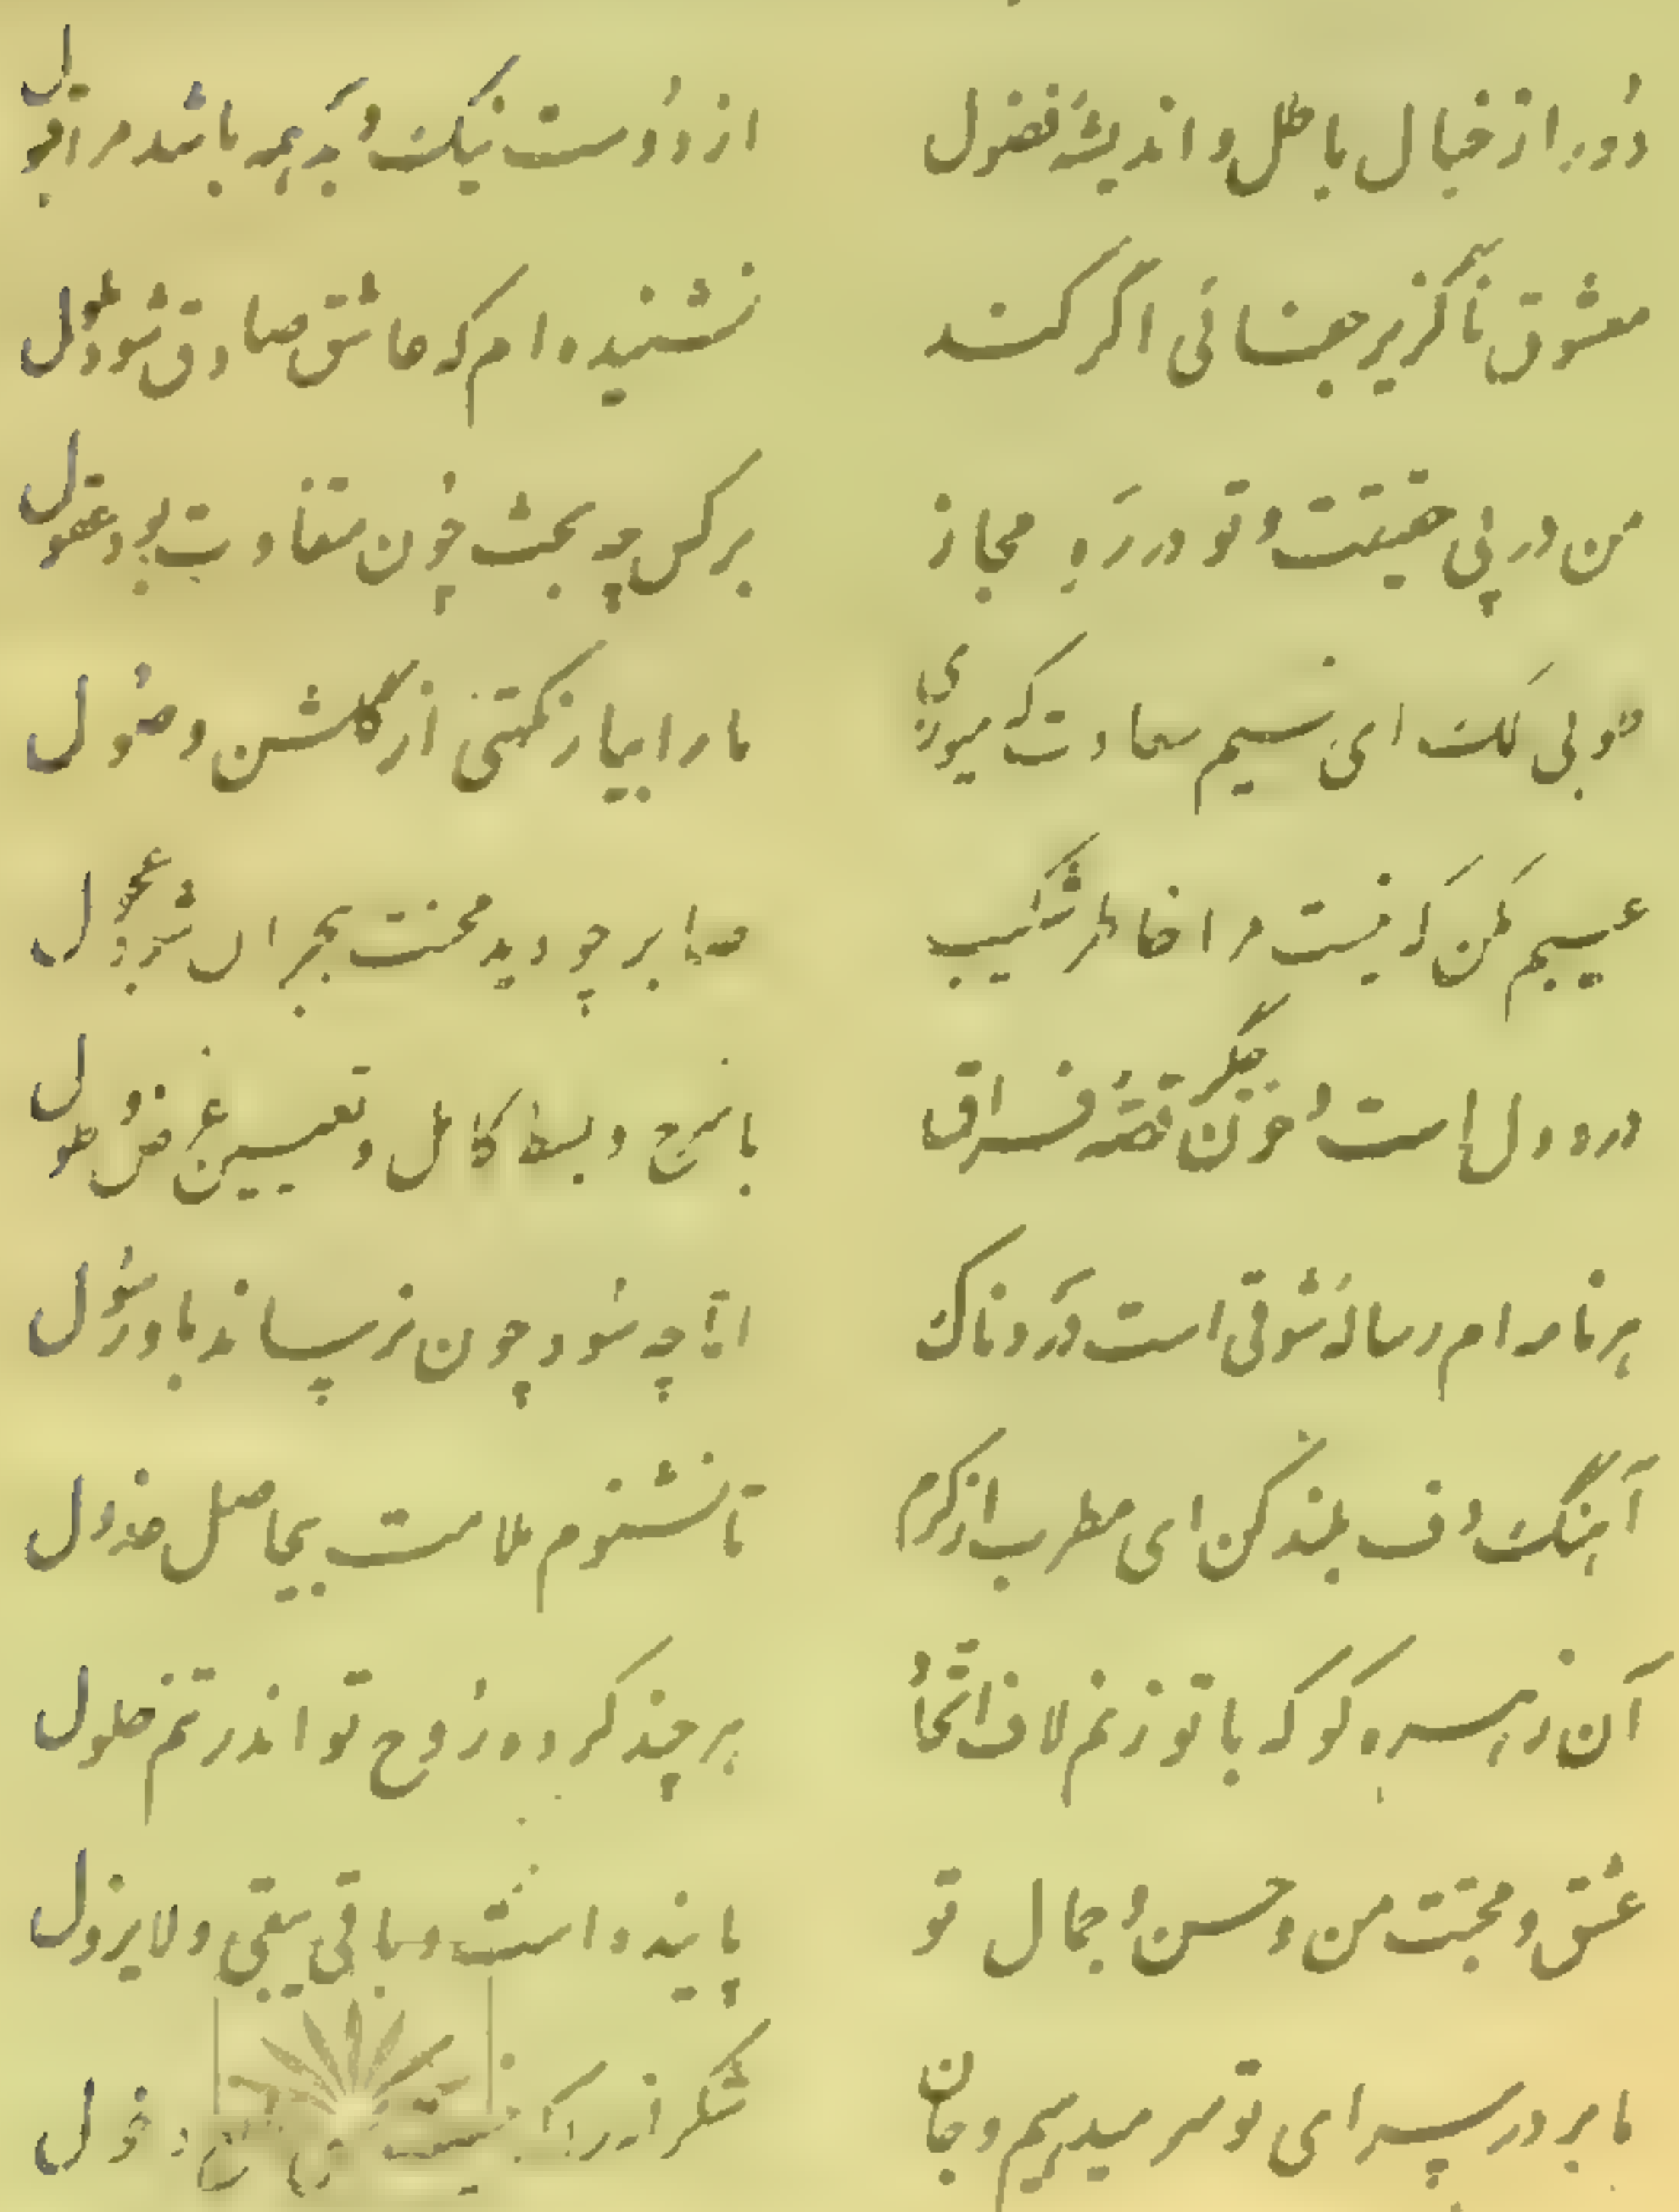 دُور از خیال باطل و اندیشهٔ فضول از دُوست نیک و بَد همه باشد مرا قبول
معشوق ناگزیر جفائی اگر کند نشنیده‌ام که عاشق صادق شود ملول
من در پی حقیقت و تو در رَهِ مجاز بر کس چه بحث چُون متفاوت بود عقول
طوبی لک ای نسیم سعادت که میوزی ما را بیار نکهتی از گلشن وصُول
عیبم مَکن کَه نیست مرا خاطر شکیب صابر چو دید محنت هجران شود عجول
درد دل است و خون جگر قصّهٔ فراق با شرح و بسط کامل و تعیین عرض و طول
هر نامه‌ام رسالهٔ شوقی است دَردناک امّا چه سُود چون نرساند باو رسُول
آهنگ دف بلند کن ای مطرب از کرم تا نشنوم ملامت بیحاصل عذول
آن زهره کو که با تو زنم لاف اتّحاد هر چند کرده رُوح تو اندر تنم حلول
عشق و محبّت من و حسن و جمال تو پاینده است و باقی یبقی و لایزول
ما بر در سرای تو سر مینهیم و جان شکر را که نیست دخول